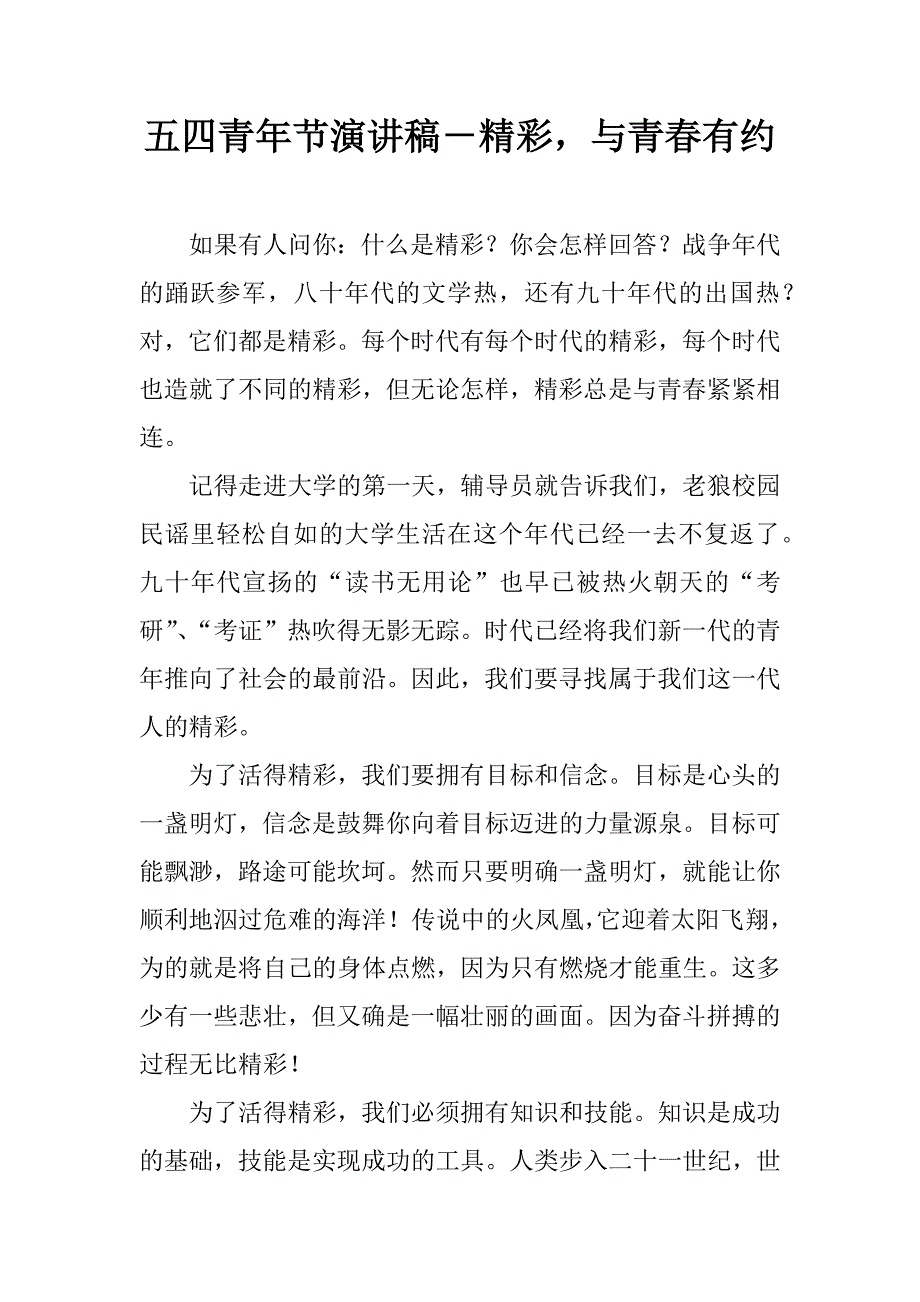 五四青年节演讲稿－精彩，与青春有约
如果有人问你：什么是精彩？你会怎样回答？战争年代
的踊跃参军，八十年代的文学热，还有九十年代的出国热？
对，它们都是精彩。每个时代有每个时代的精彩，每个时代
也造就了不同的精彩，但无论怎样，精彩总是与青春紧紧相
连。
记得走进大学的第一天，辅导员就告诉我们，老狼校园
民谣里轻松自如的大学生活在这个年代已经一去不复返了。
九十年代宣扬的“读书无用论”也早已被热火朝天的“考
研”、“考证”热吹得无影无踪。时代已经将我们新一代的青
年推向了社会的最前沿。因此，我们要寻找属于我们这一代
人的精彩。
为了活得精彩，我们要拥有目标和信念。目标是心头的
一盏明灯，信念是鼓舞你向着目标迈进的力量源泉。目标可
能飘渺，路途可能坎坷。然而只要明确一盏明灯，就能让你
顺利地泅过危难的海洋！传说中的火凤凰，它迎着太阳飞翔，
为的就是将自己的身体点燃，因为只有燃烧才能重生。这多
少有一些悲壮，但又确是一幅壮丽的画面。因为奋斗拼搏的
过程无比精彩！
为了活得精彩，我们必须拥有知识和技能。知识是成功
的基础，技能是实现成功的工具。人类步入二十一世纪，世